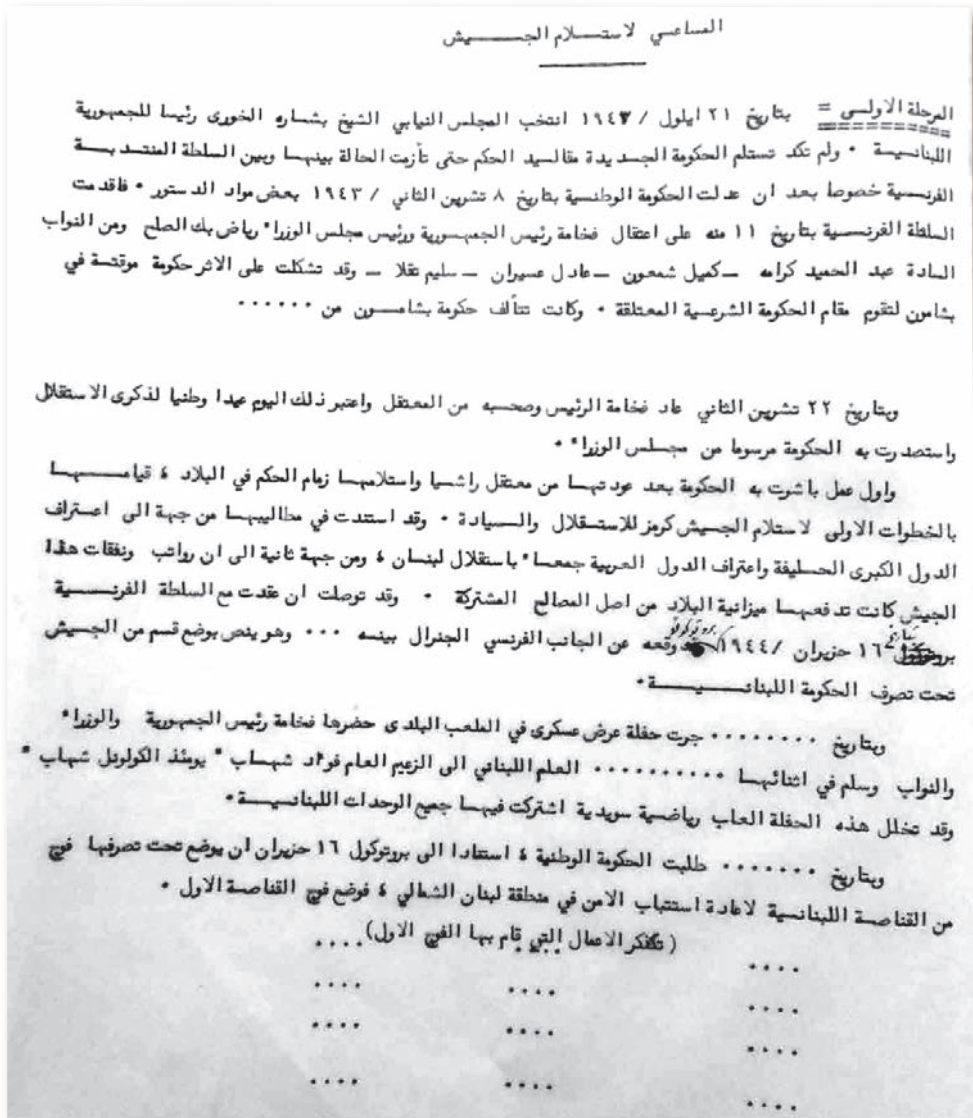 المساعي لاستلام الجيش
المرحلة الاولى = بتاريخ ٢١ ايلول / ١٩٤٣ انتخب المجلس النيابي الشيخ بشاره الخورى رئيسا للجمهورية
اللبنانية • ولم تكد تستلم الحكومة الجديدة مقاليد الحكم حتى تأزمت الحالة بينها وبين السلطة المنتدبة
الفرنسية خصوصا بعد ان عدلت الحكومة الوطنية بتاريخ ٨ تشرين الثاني / ١٩٤٣ بعض مواد الدستور • فاقدمت
السلطة الفرنسية بتاريخ ١١ منه على اعتقال فخامة رئيس الجمهورية ورئيس مجلس الوزراء رياض بك الصلح ومن النواب
السادة عبد الحميد كرامه – كميل شمعون – عادل عسيران – سليم تقلا – وقد تشكلت على الاثر حكومة موقتة في
بشامون لتقوم مقام الحكومة الشرعية المعتلقة • وكانت تتألف حكومة بشامون من ••••••
وبتاريخ ٢٢ تشرين الثاني عاد فخامة الرئيس وصحبه من المعتقل واعتبر ذلك اليوم عيدا وطنيا لذكرى الاستقلال
واستصدرت به الحكومة مرسوما من مجلس الوزراء •
واول عمل باشرت به الحكومة بعد عودتها من معتقل راشيا واستلامها زمام الحكم في البلاد ، قيامها
بالخطوات الاولى لاستلام الجيش كرمز للاستقلال والسيادة • وقد استندت في مطاليبها من جهة الى اعتراف
الدول الكبرى الحليفة واعتراف الدول العربية جمعاء باستقلال لبنان ، ومن جهة ثانية الى ان رواتب ونفقات هذا
الجيش كانت تدفعها ميزانية البلاد من اصل المصالح المشتركة • وقد توصلت ان عقدت مع السلطة الفرنسية
بتاريخ ١٦ حزيران / ١٩٤٤ بروتوكولا وقعه عن الجانب الفرنسي الجنرال بينه ••• وهو ينص بوضع قسم من الجيش
تحت تصرف الحكومة اللبنانية •
وبتاريخ •••••••• جرت حفلة عرض عسكرى في الملعب البلدى حضرها فخامة رئيس الجمهورية والوزراء
والنواب وسلم في اثنائها •••••••••• العلم اللبناني الى الزعيم العام فؤاد شهاب " يومئذ الكولونل شهاب "
وقد تخلل هذه الحفلة العاب رياضية سويدية اشتركت فيها جميع الوحدات اللبنانية •
وبتاريخ ••••••• طلبت الحكومة الوطنية ، استنادا الى بروتوكول ١٦ حزيران ان يوضع تحت تصرفها فوج
من القناصة اللبنانية لاعادة استتباب الامن في منطقة لبنان الشمالي ، فوضع فوج القناصة الاول •
( تذكر الاعمال التي قام بها الفوج الاول )
•••• •••• ••••
•••• •••• ••••
•••• •••• ••••
•••• •••• ••••